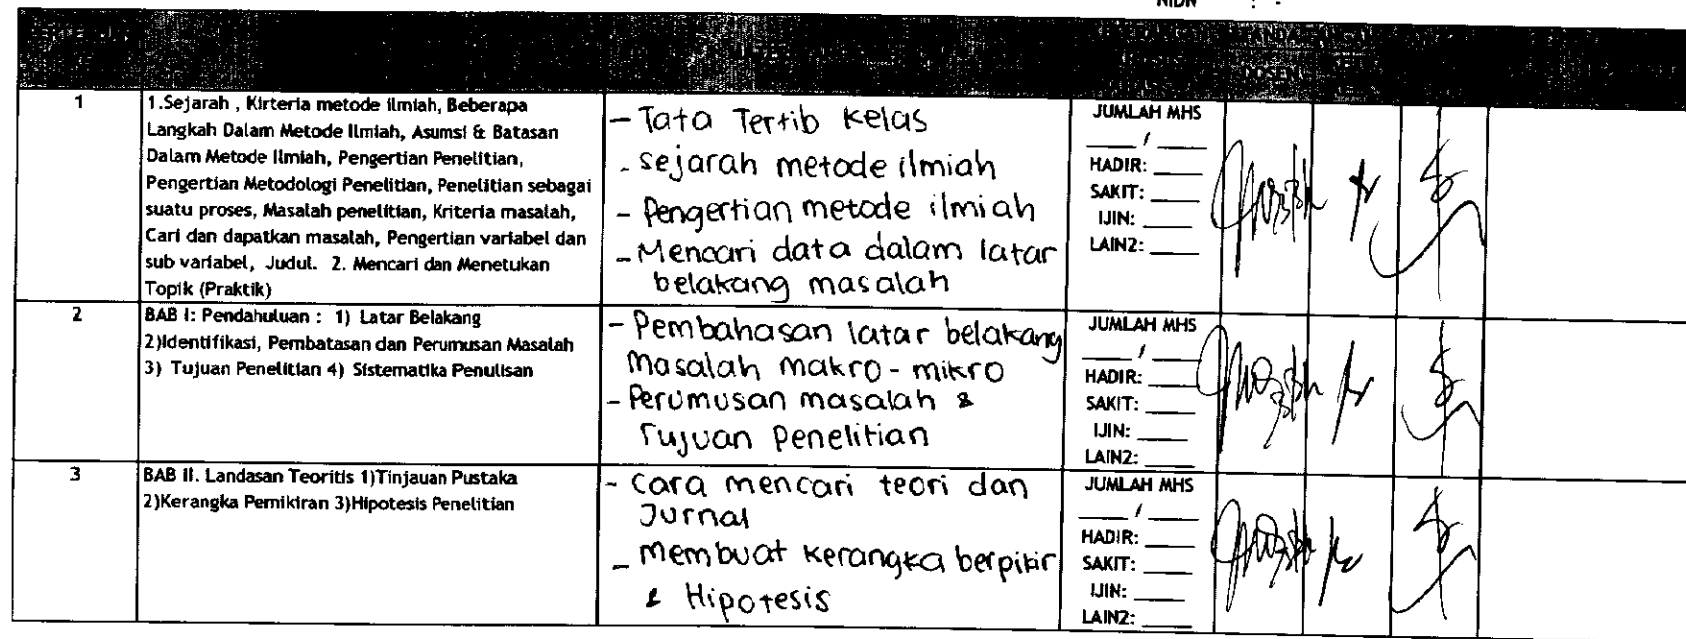 NIDN : -
TANDA TANGAN
DOSEN
1
1.Sejarah , Kirteria metode ilmiah, Beberapa
Langkah Dalam Metode Ilmiah, Asumsi & Batasan
Dalam Metode Ilmiah, Pengertian Penelitian,
Pengertian Metodologi Penelitian, Penelitian sebagai
suatu proses, Masalah penelitian, Kriteria masalah,
Cari dan dapatkan masalah, Pengertian variabel dan
sub variabel, Judul. 2. Mencari dan Menetukan
Topik (Praktik)
- Tata Tertib Kelas
- Sejarah metode ilmiah
- Pengertian metode ilmiah
- Mencari data dalam latar
belakang masalah
JUMLAH MHS
____ / ____
HADIR: ____
SAKIT: ____
IJIN: ____
LAIN2: ____
2
BAB I: Pendahuluan : 1) Latar Belakang
2)Identifikasi, Pembatasan dan Perumusan Masalah
3) Tujuan Penelitian 4) Sistematika Penulisan
- Pembahasan latar belakang
Masalah makro - mikro
- Perumusan masalah &
Tujuan Penelitian
JUMLAH MHS
____ / ____
HADIR: ____
SAKIT: ____
IJIN: ____
LAIN2: ____
3
BAB II. Landasan Teoritis 1)Tinjauan Pustaka
2)Kerangka Pemikiran 3)Hipotesis Penelitian
- Cara mencari teori dan
Jurnal
- membuat kerangka berpikir
& Hipotesis
JUMLAH MHS
____ / ____
HADIR: ____
SAKIT: ____
IJIN: ____
LAIN2: ____